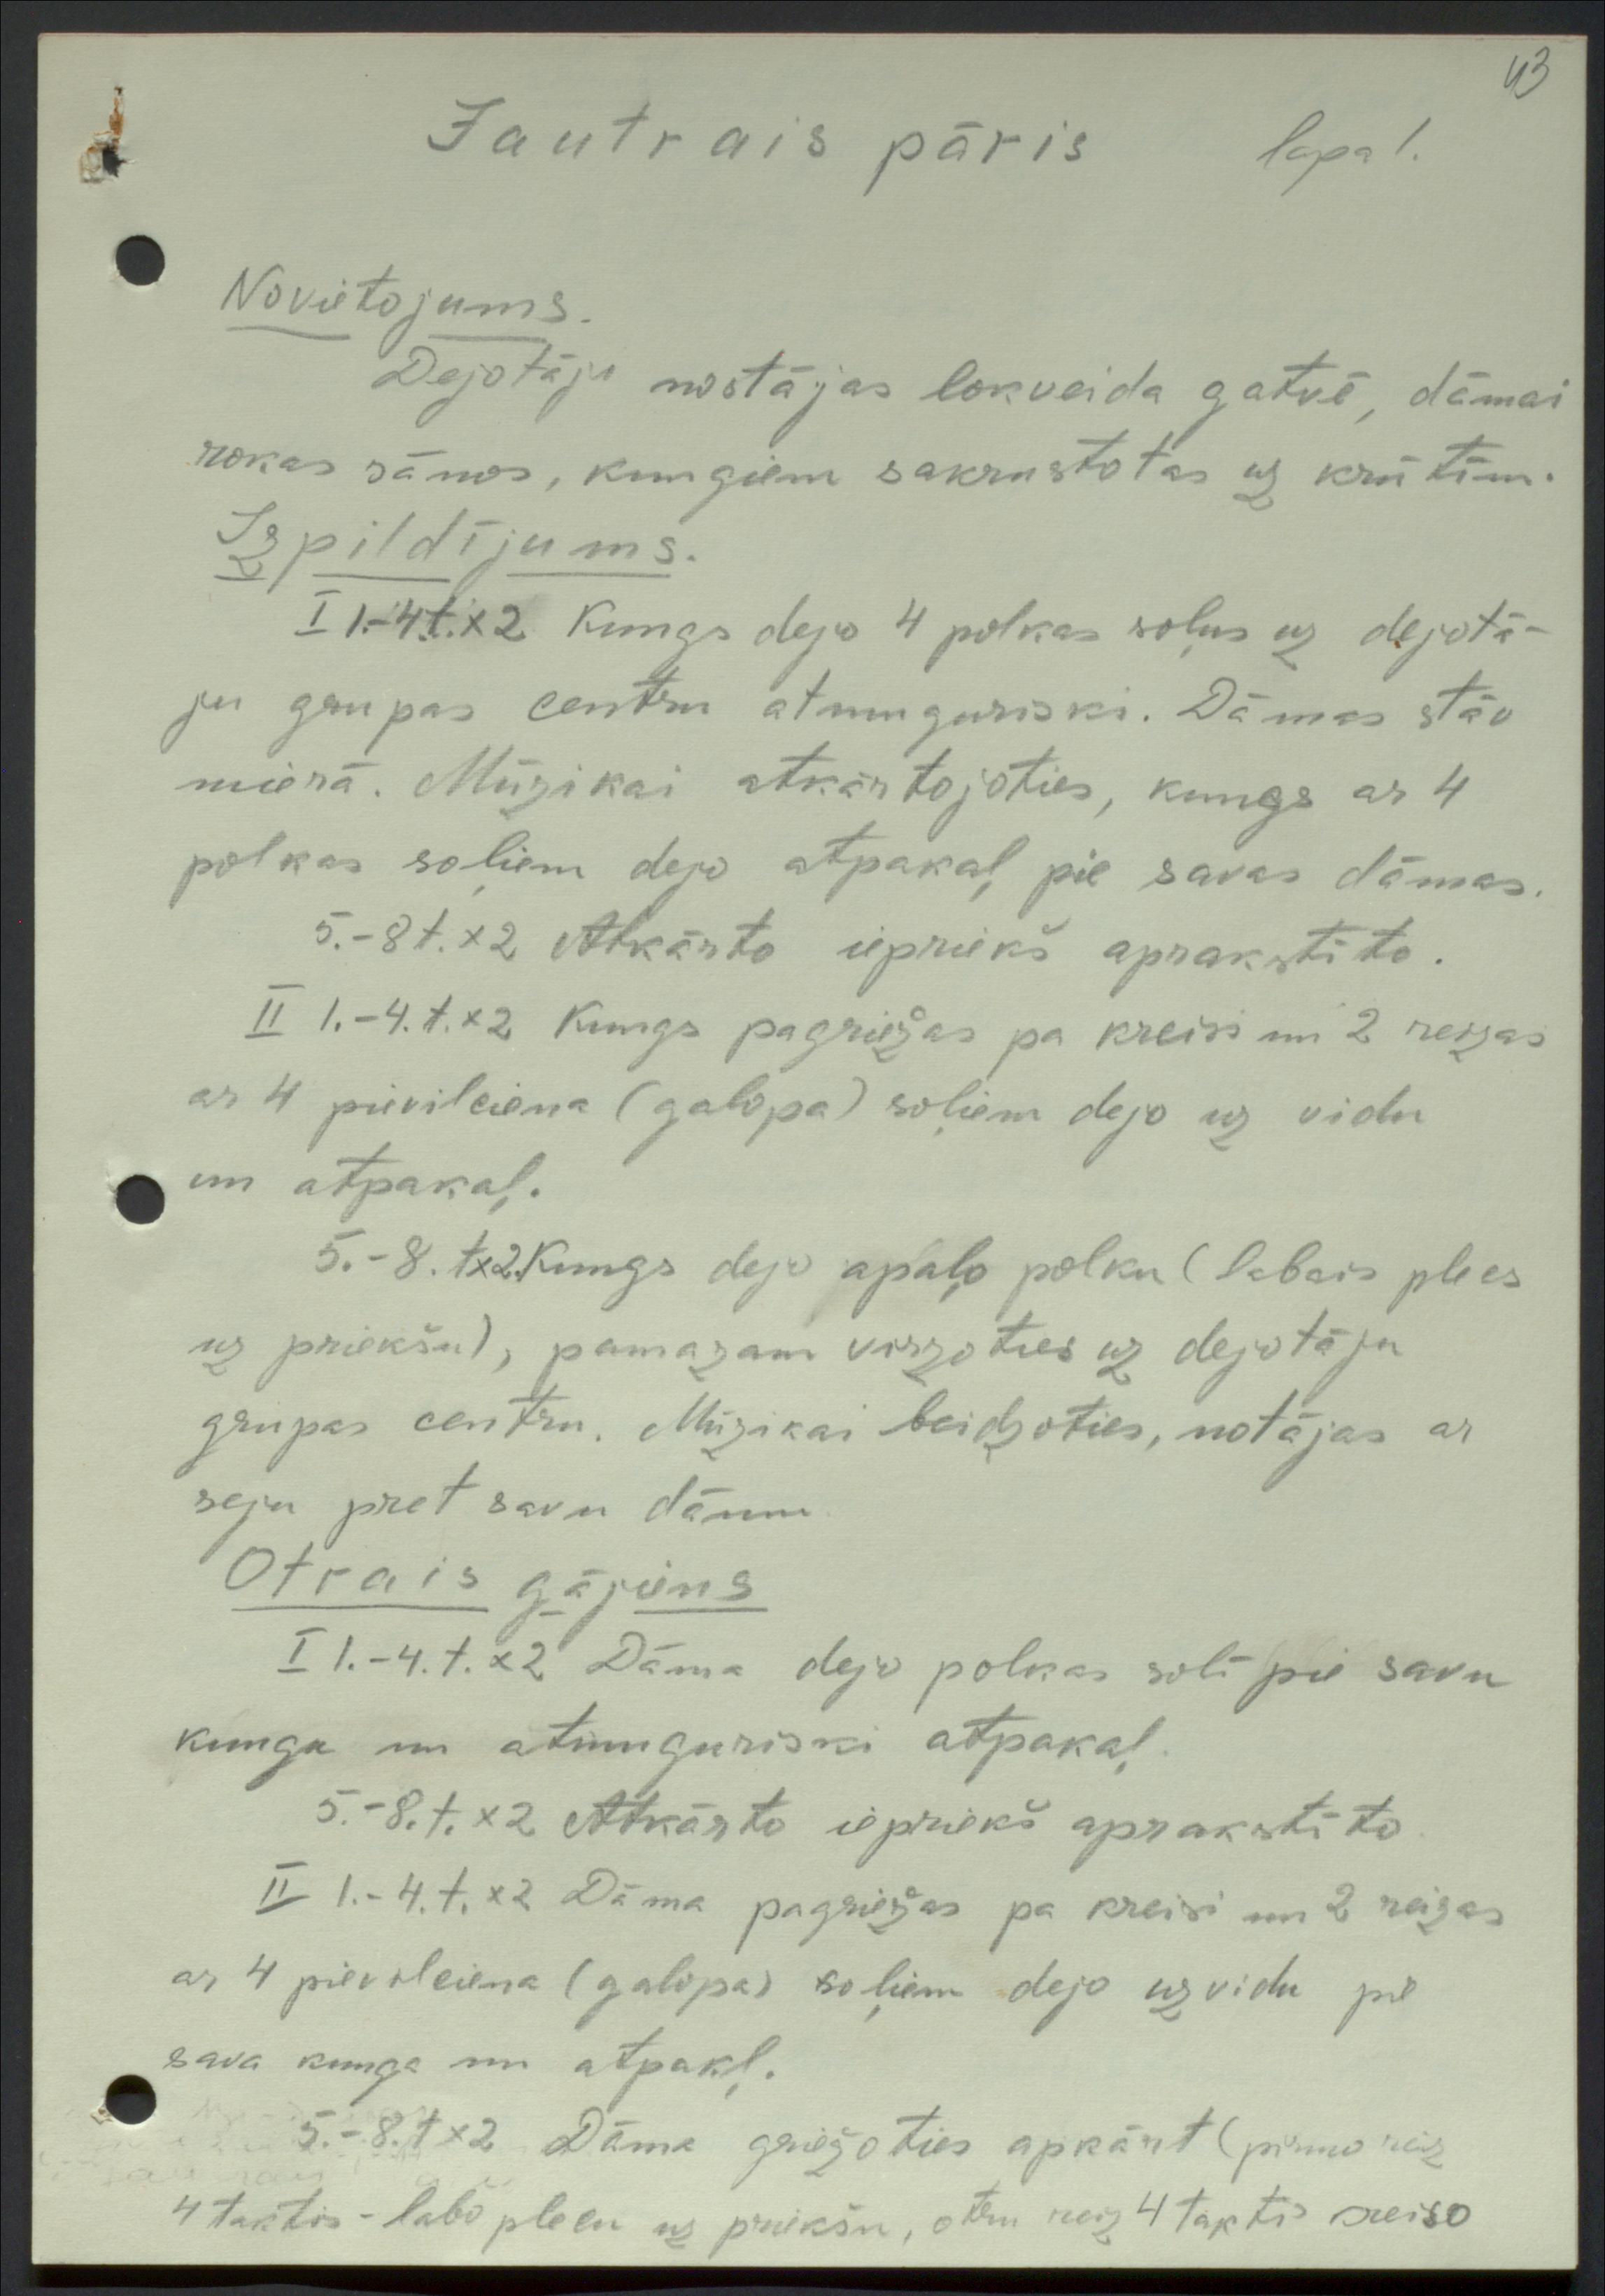 43
Jautrais pāris lapa 1.
Novietojums.
Dejotāji nostājas lokveida gatvē, dāmai
rokas sānos, kungiem sakrustotas uz krūtīm.
Izpildījums.
I 1.-4.t.x2 Kungs dejo 4 polkas soļus uz dejotā-
ju grupas centru atmuguriski. Dāmas stāv
mierā. Mūzikai atkārtojoties, kungs ar 4
polkas soļiem dejo atpakaļ pie savas dāmas.
5.-8 t.x2 Atkārto iepriekš aprakstīto.
II 1.-4.t.x2 Kungs pagriežas pa kreisi un 2 reizas
ar 4 pievilciena (galopa) soļiem dejo uz vidu
un atpakaļ.
5.-8.tx2. Kungs dejo apaļo polku (labais plecs
uz priekšu), pamazam virzoties uz dejotāju
grupas centru. Mūzikai beidzoties, notājas ar
seju pret savu dāmu
Otrais gājiens
I 1.-4.t.x2 Dāma dejo polkas solī pie savu
kunga un atmuguriski atpakaļ.
5.-8.t.x2 Atkārto iepriekš aprakstīto
II 1.-4.t.x2 Dāma pagriežas pa kreisi un 2 reizas
ar 4 pievilciena (galopa) soļiem dejo uz vidu pie
sava kunga un atpakļ.
5.-8.tx2 Dāma griežoties apkārt (pirmo reiz
4 taktis - labo plecu uz priekšu, otru reiz 4 taktis kreiso